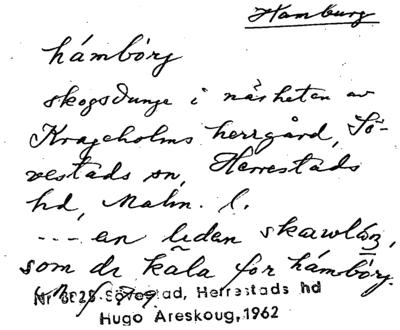 Hamburg
hámbórg
skogsdunge i närheten av
Krageholms herrgård, Sö-
vestads sn, Herrestads
hd, Malm. l.
--- en liden skawlåz,
som di kăla for hámbórg.
Nr 6828 Sövestad, Herrestads hd
Hugo Areskoug, 1962